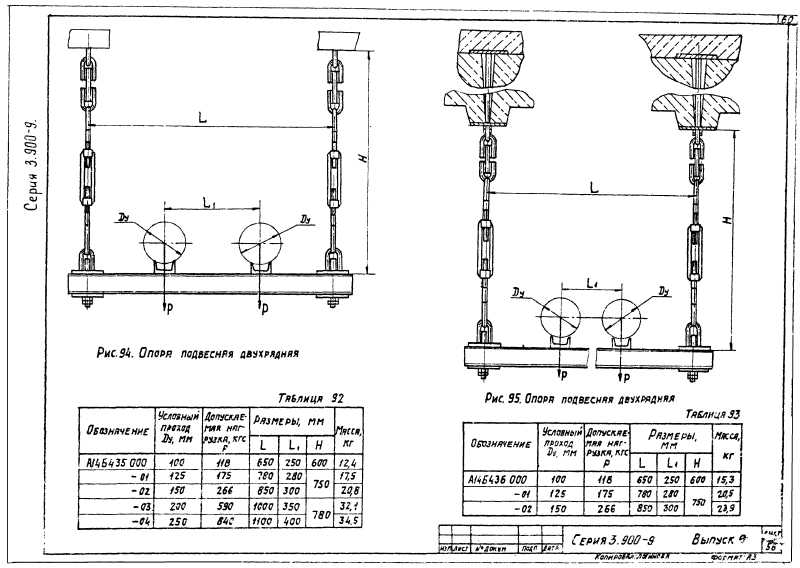 60
Серия 3.900-9.
L
H
L1
Dу
Dу
P
P
Рис. 94. Опора подвесная двухрядная
Таблица 92
Обозначение | Условный проход Dу, мм | Допускаемая нагрузка, кгс P | Размеры, мм L | L1 | H | Масса, кг
А14Б435 000 | 100 | 118 | 650 | 250 | 600 | 12,4
-01 | 125 | 175 | 780 | 280 | 750 | 17,5
-02 | 150 | 266 | 850 | 300 | 20,8
-03 | 200 | 590 | 1000 | 350 | 780 | 32,1
-04 | 250 | 840 | 1100 | 400 | 34,5
L
H
L1
Dу
Dу
P
P
Рис. 95. Опора подвесная двухрядная
Таблица 93
Обозначение | Условный проход Dу, мм | Допускаемая нагрузка, кгс P | Размеры, мм L | L1 | H | Масса, кг
А14Б436 000 | 100 | 118 | 650 | 250 | 600 | 15,3
-01 | 125 | 175 | 780 | 280 | 750 | 20,5
-02 | 150 | 266 | 850 | 300 | 23,9
Изм. Лист № докум Подп Дата
Серия 3.900-9 Выпуск
Лист
Копировал
Формат А3